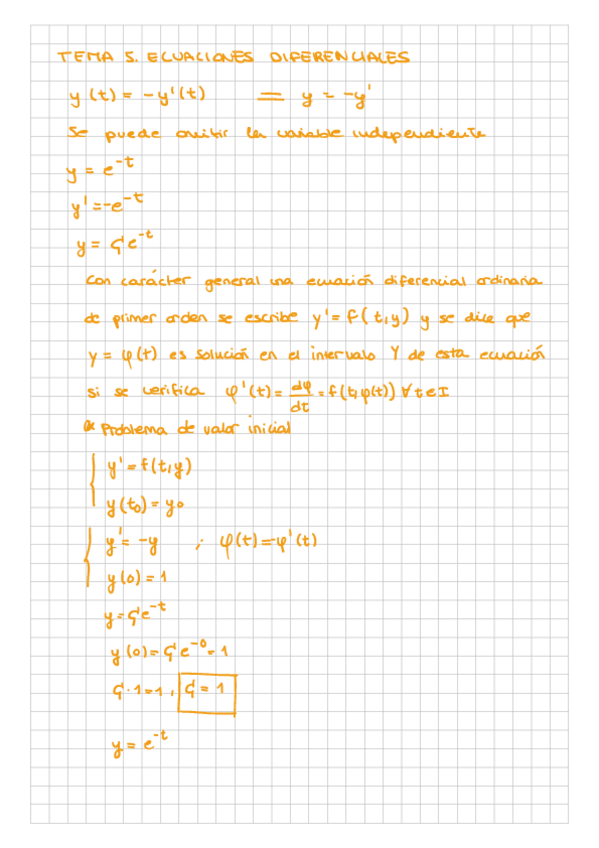 TEMA 5. ECUACIONES DIFERENCIALES
y (t) = -y'(t) = y = -y'
Se puede omitir la variable independiente
y = e^-t
y' = -e^-t
y = C e^-t
Con carácter general una ecuación diferencial ordinaria
de primer orden se escribe y' = f(t,y) y se dice que
y = φ(t) es solución en el intervalo Y de esta ecuación
si se verifica φ'(t) = dφ/dt = f(t,φ(t)) ∀ t ∈ I
Problema de valor inicial
y' = f(t,y)
y(t0) = y0
y' = -y ; φ(t) = -φ'(t)
y(0) = 1
y = C e^-t
y(0) = C e^-0 = 1
C · 1 = 1, C = 1
y = e^-t